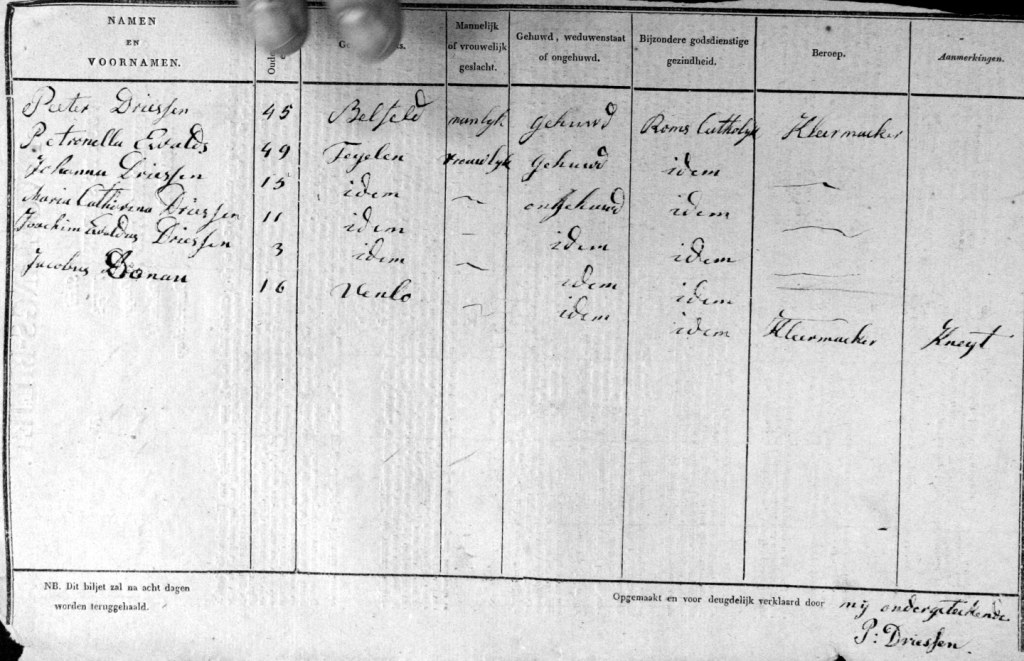 NAMEN EN VOORNAMEN. Mannelijk of vrouwelijk geslacht. Gehuwd, weduwenstaat of ongehuwd. Bijzondere godsdienstige gezindheid. Beroep. Aanmerkingen.
Peeter Driessen 45 Belfeld manlyk gehuwd Roms Catholyk Kleermaeker
Petronella Ewalds 49 Tegelen vrouwlyk gehuwd idem
Johanna Driessen 15 idem ongehuwd idem
Maria Catharina Driessen 11 idem idem idem
Joachim Ewaldus Driessen 3 idem idem idem
Jacobus 16 Venlo idem idem Kleermaeker Kneyt
NB. Dit biljet zal na acht dagen
worden teruggehaald.
Opgemaakt en voor deugdelijk verklaard door my ondergeteekende
P: Driessen.